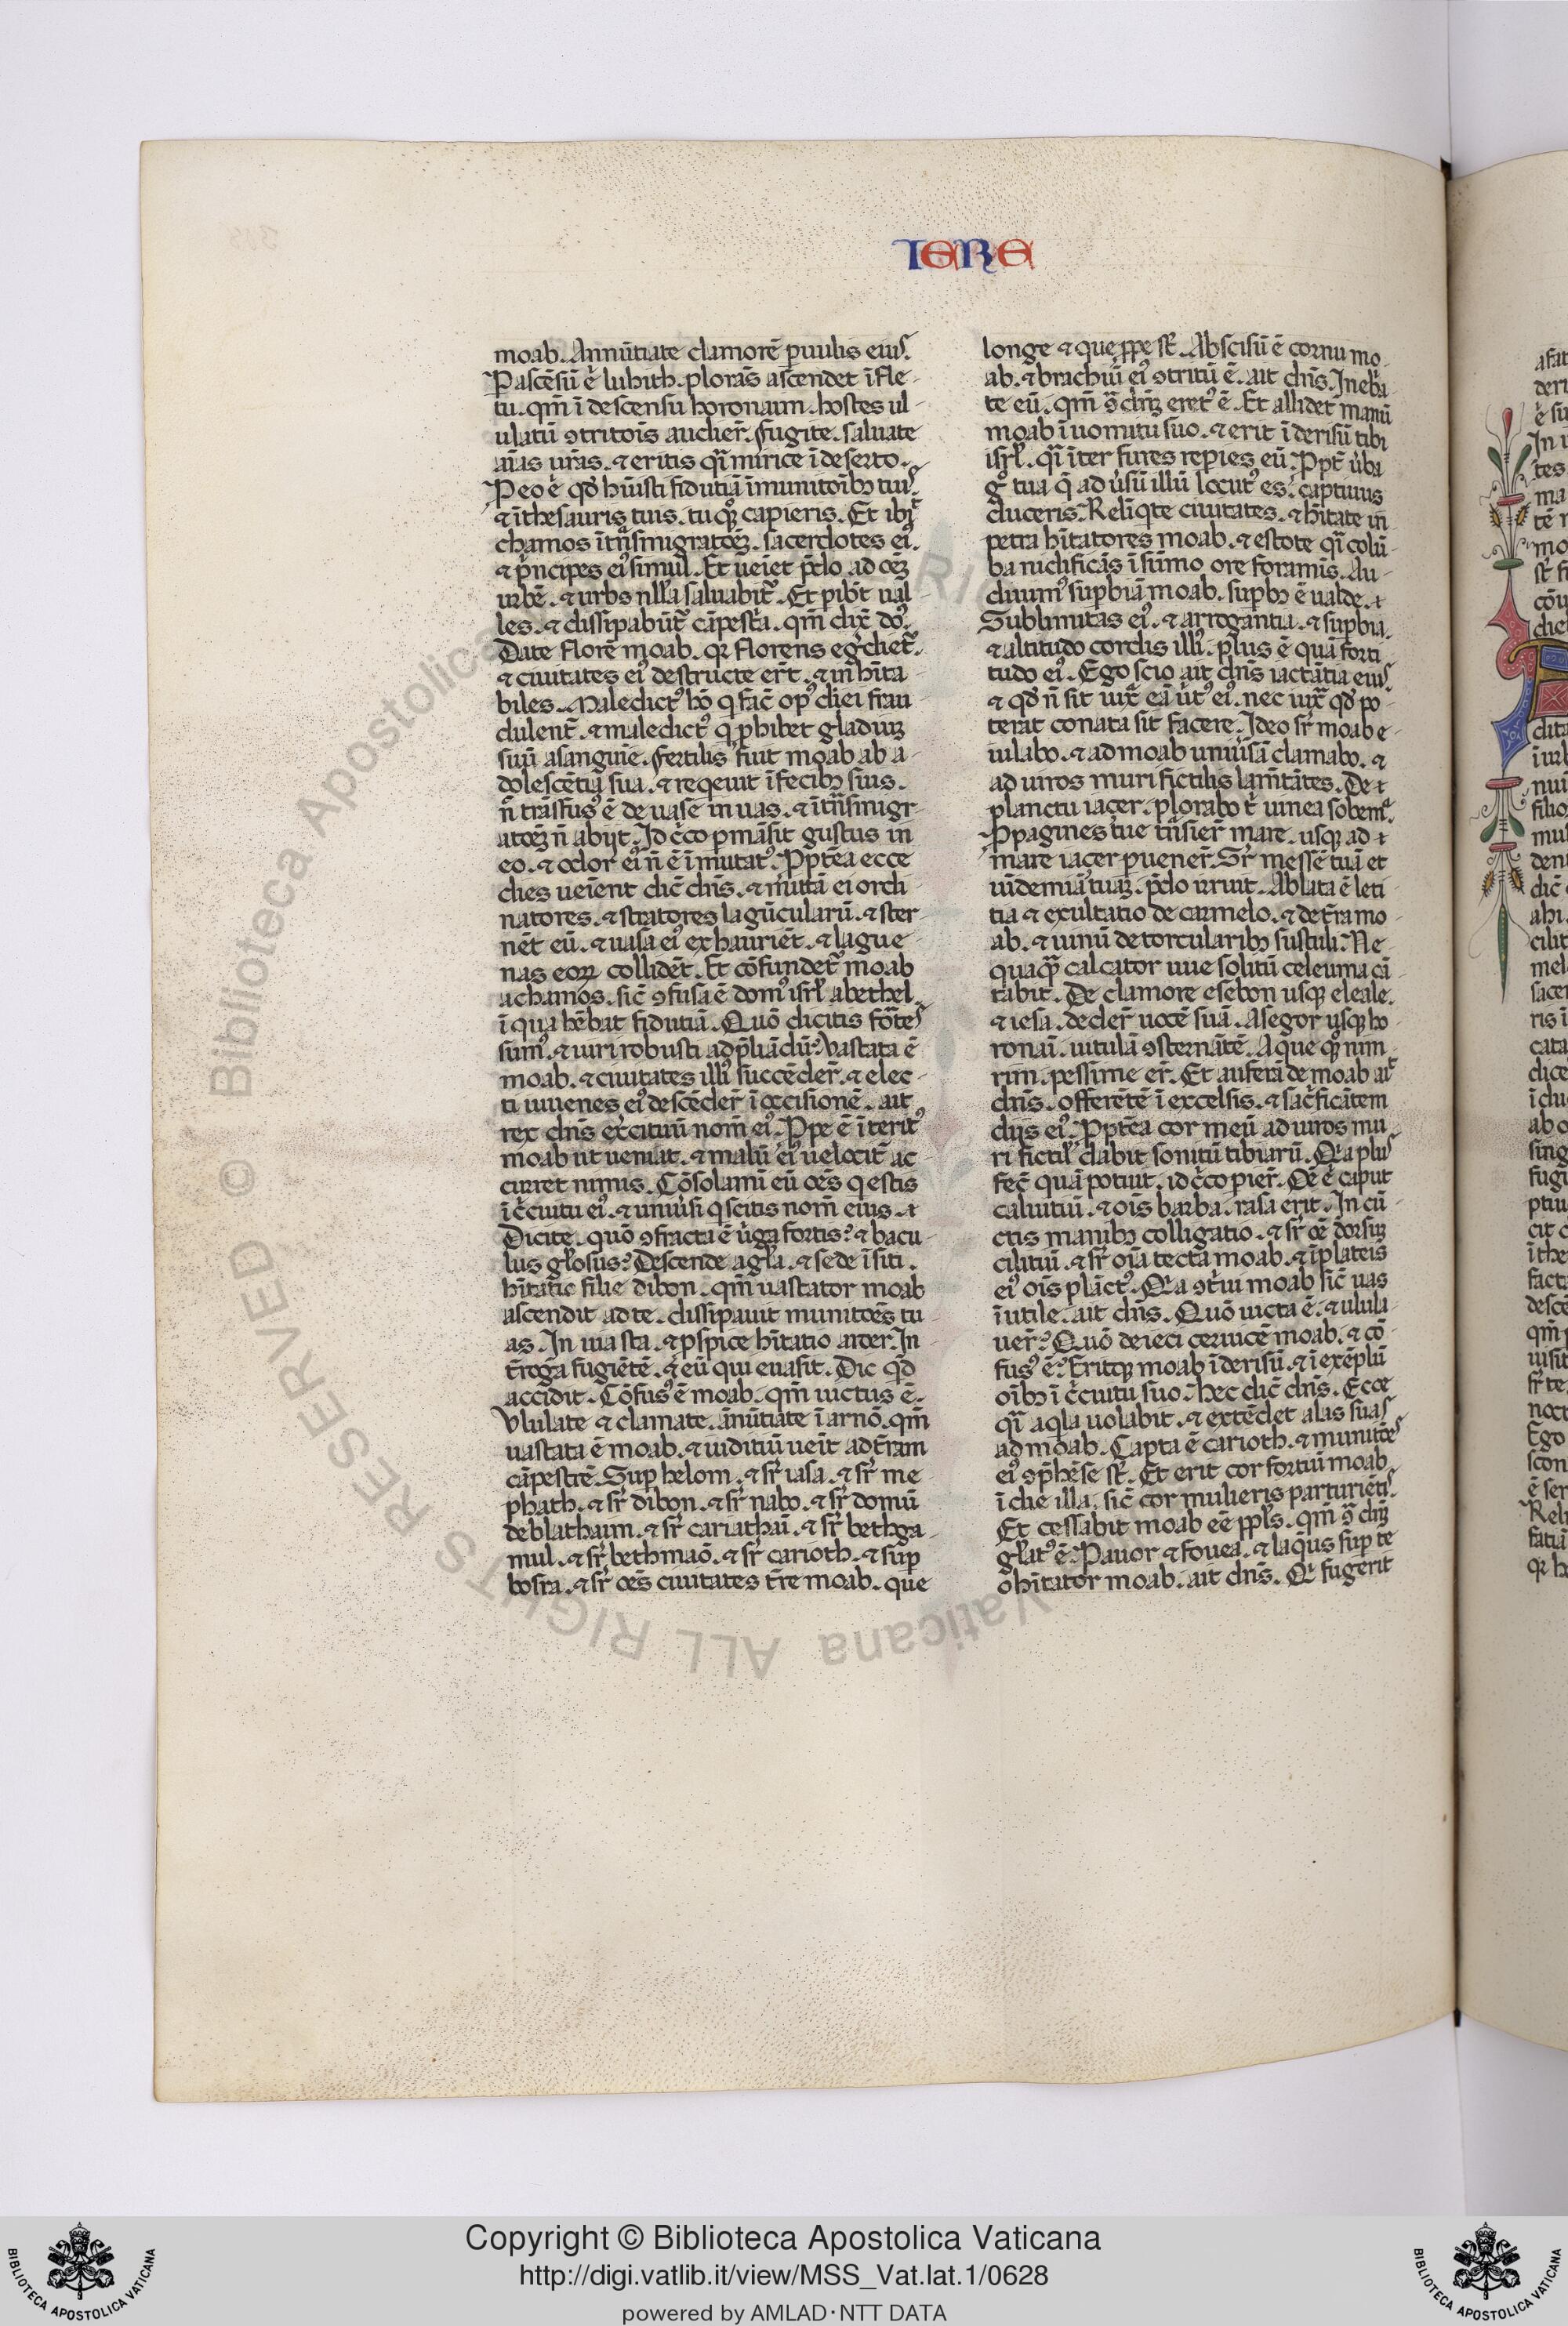 IERE
moab. Annūtiate clamorē puulis eiuſ.
P aſcēſū .n. luhith. plorās aſcendet ī fle-
tu. qm̄ ī deſcenſu horonaim. hoſtes ul-
ulatū ꝯtritōis audier̄. fugite. ſaluate
aīas ur̄as. ⁊ eritis qͣi mirice ī deſerto.
P eo .n. qd̓ h̓uiſti fidutiā ī munitoīb; tuiſ.
⁊ ī theſauris tuis. tu qͦq; capieris. Et ibi͛t
chamos ī tn̄ſmigratōez. ſacerdotes eiꝰ.
⁊ pͥncipes eiꝰ ſimul. Et ueīet p̄do ad oēz
urbē. ⁊ urbs nll̓a ſaluabit͛. Et pib̓t ual-
les. ⁊ diſſipabūt͛ cāpeſtͥa. qm̄ dix̄ dn̄s.
Date florē moab. qꝛ florens eg̓diet͛.
⁊ ciuitates eiꝰ deſtructe er̄t. ⁊ in h̄ita
biles. Maledictꝰ hō q fac̄ opꝰ dn̄i frau
dulent̄. ⁊ maledictꝰ q ꝓhibet gladium
ſuū a ſanguīe. Fertilis fuit moab ab a-
doleſcētia ſua. ⁊ reqeuit ī fecib; ſuis.
n̄ trāſfuſꝰ ē de uaſe in uas. ⁊ ī tn̄ſmigr-
atoez n̄ abijt. Idc̓co pmāſit guſtus in
eo. ⁊ odor eiꝰ n̄ ē īmutatꝰ. Ppt̄ea ecce
dies ueīent dic̄ dn̄s. ⁊ mittā ei ordi-
natores. ⁊ ſtratores lagūcularū. ⁊ ſter-
nēt eū. ⁊ uaſa eiꝰ exhauriēt. ⁊ lague-
nas eoꝝ collidēt. Et cōfundet͛ moab
a chamos. ſic̄ ꝯfuſa ē domꝰ iſrl̓ a bethel.
ī qua h̄ebat fidutiā. Quō dicitis fōrteſ
ſumꝰ. ⁊ uiri robuſti ad p̄liādū? Vaſtata ē
moab. ⁊ ciuitates illiꝰ ſuccēder̄. ⁊ elec-
ti iuuenes eiꝰ deſcēder̄ ī occiſionē. ait
rex dn̄s exercituū nom̄ eiꝰ. Ppe ē īteritꝰ
moab ut ueniat. ⁊ malū eiꝰ uelocit̄ ac-
curret nimis. Cōſolamī eū oēs q eſtis
ī c̓cuitu eiꝰ. ⁊ uniu̓ſi q ſcitis nom̄ eius. ⁊
Dicite. quō ꝯfracta ē u̓ga fortis? ⁊ bacu-
lus gl̓oſus? Deſcende a gl̓a. ⁊ ſede ī ſiti.
h̄itatio filie dibon. qm̄ uaſtator moab
aſcendit ad te. diſſipauit munitoēs tu-
as. In uia ſta. ⁊ pſpice h̄itatio aroer. In
t̄roga fugiētē. ⁊ eū qui euaſit. Dic qd̓
accidit. Cōfuſꝰ ē moab. qm̄ uictus ē.
Vlulate ⁊ clamate. ānūtiate ī arnō. qm̄
uaſtata ē moab. ⁊ iuditiū ueīt ad t̄ram
cāpeſtrē. Sup helom. ⁊ ſr̄ iaſa. ⁊ ſr̄ me-
phath. ⁊ ſr̄ dibon. ⁊ ſr̄ nabo. ⁊ ſr̄ domū
deblathaim. ⁊ ſr̄ cariathaī. ⁊ ſr̄ bethga-
mul. ⁊ ſr̄ bethmaō. ⁊ ſr̄ carioth. ⁊ ſup
boſra. ⁊ ſr̄ oēs ciuitates t̄re moab. que
longe ⁊ que ꝓpe ſt̄. Abſciſū ē cornu mo-
ab. ⁊ brachiū eiꝰ ꝯtritū ē. ait dn̄s. Inebͥa
te eū. qm̄ ꝯ͛ dn̄z erectꝰ ē. Et allidet manū
moab ī uomitu ſuo. ⁊ erit ī deriſū tibi
iſrl̓. qͣi īter fures repies eū. Ppt̄ u̓ba
gͦ tua q̄ ad u̓ſū illū locutꝰ es. captiuus
duceris. Relīqte ciuitates. ⁊ h̄itate in
petra h̄itatores moab. ⁊ eſtote qͣi colū-
ba nidificās ī ſūmo ore foramīs. Au-
diuimꝰ ſupbiā moab. ſupbꝰ ē ualde. ⁊
Sublimitas eiꝰ. ⁊ arrogantia. ⁊ ſupbia.
⁊ altitudo cordis illiꝰ. plus ē quā forti-
tudo eiꝰ. Ego ſcio ait dn̄s iactātia eiuſ.
⁊ qd̓ n̄ ſit iuxͣ eā u̓tꝰ eiꝰ. nec iuxͣ qd̓ po-
terat conata ſit facere. Ideo ſr̄ moab e-
iulabo. ⁊ ad moab uniu̓ſā clamabo. ⁊
ad uiros muri fictilis lam̄tātes. De ⁊
planctu iacer. plorabo t̄ uinea ſobem̄ᵉ.
P pagines tue tn̄ſier̄ mare. uſq; ad ⁊
mare iacer puener̄. Sr̄ meſſē tuā et
uīdemiā tuaz. p̄do irruit. Ablata ē leti-
tia ⁊ exultatio de carmelo. ⁊ de t̄ra mo-
ab. ⁊ uinū de torcularib; ſuſtuli. Ne-
quaqͣ calcator uue ſolitū celeuma cā-
tabit. De clamore eſebon uſq; eleale.
⁊ ieſa. deder̄ uocē ſuā. A ſegor uſq; ho-
ronaī. uitulā ꝯſternātē. Aque qͦq; nim-
rim. peſſime er̄t. Et auferā de moab aiͭ
dn̄s. offerētē ī excelſis. ⁊ ſac̓ficātem
diis eiꝰ. Ppt̄ea cor meū ad uiros mu-
ri fictil̓ dabit ſonitū tibiarū. Qꝛa pluſ
fec̄ quā potuit. idc̓co pier̄. Oē .n. caput
caluitiū. ⁊ oīs barba. raſa erit. In cū-
ctis manib; colligatio. ⁊ ſr̄ oē dorſuz
cilitiū. ⁊ ſr̄ oīa tecta moab. ⁊ ī plateis
eiꝰ oīs plāctꝰ. Qꝛa ꝯt̓ui moab ſic̄ uas
īutile. ait dn̄s. Quō uicta ē. ⁊ ulula-
uer̄? Quō deieci ceruicē moab. ⁊ cō-
fuſꝰ ē? Eritq; moab ī deriſū. ⁊ ī exēplū
oīb; ī c̓cuitu ſuo. hec dic̄ dn̄s. Ecce
qͣi aqla uolabit. ⁊ extēdet alas ſuaſ
ad moab. Capta ē carioth. ⁊ munitōeſ
eiꝰ ꝯp̄hēſe ſt̄. Et erit cor fortiū moab
ī die illa. ſic̄ cor mulieris parturiētiſ.
Et ceſſabit moab eē ppl̓s. qm̄ ꝯ͛ dn̄z
gl̓atꝰ ē. Pauor ⁊ fouea. ⁊ laq̄us ſup te
o h̄itator moab. ait dn̄s. Qͥ fugerit
Copyright © Biblioteca Apostolica Vaticana
http://digi.vatlib.it/view/MSS_Vat.lat.1/0628
powered by AMLAD·NTT DATA
BIBLIOTECA APOSTOLICA VATICANA
BIBLIOTECA APOSTOLICA VATICANA